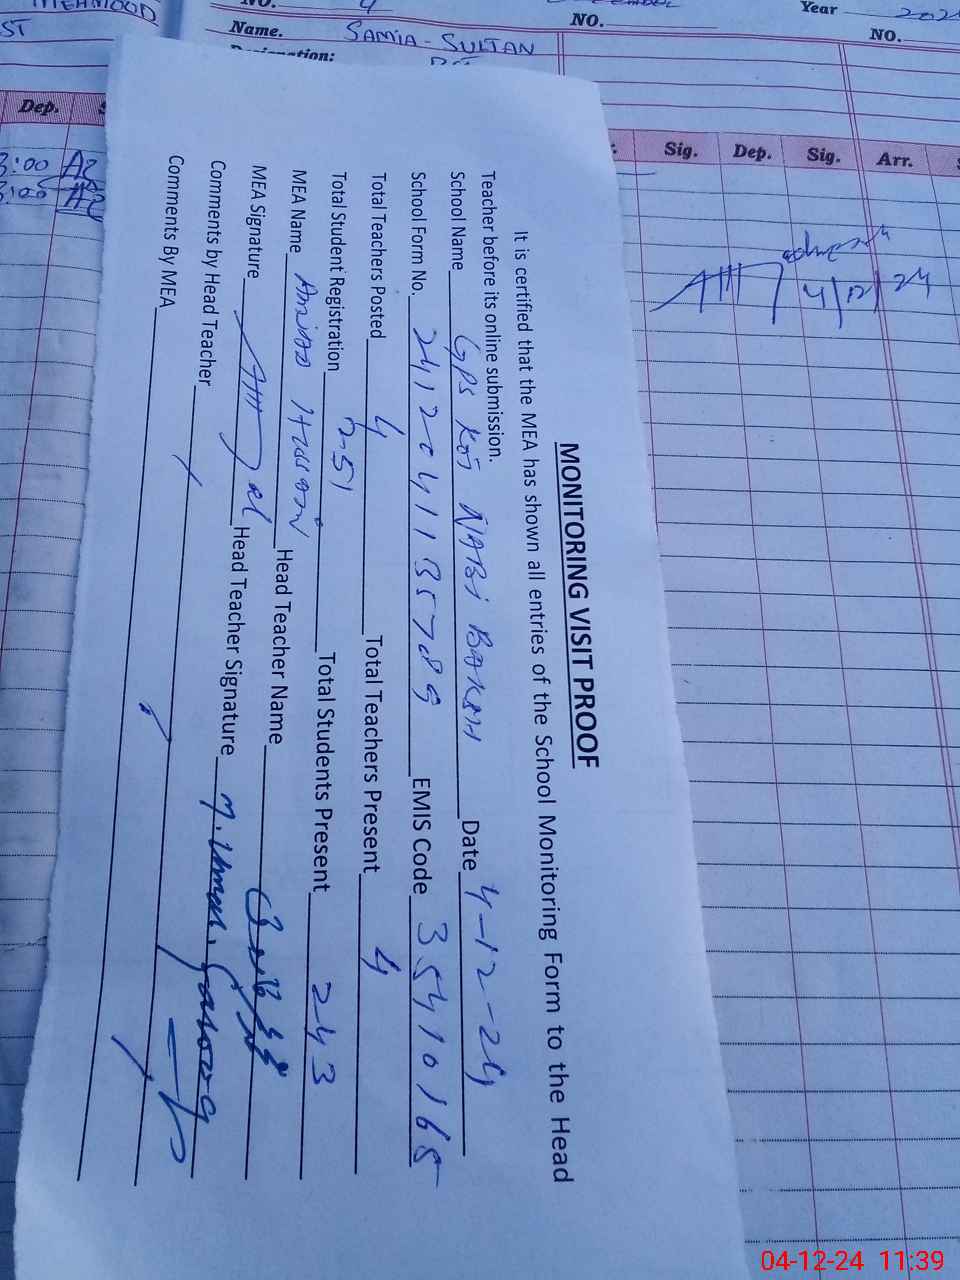 MEHMOOD
ST
Dep.
3:00 AZ
3:05 AZ
NO. 4
NO.
Year 202
Name. SAMIA-SULTAN
NO.
Designation:
Sig. Dep. Sig. Arr.
4/12/24
MONITORING VISIT PROOF
It is certified that the MEA has shown all entries of the School Monitoring Form to the Head
Teacher before its online submission.
School Name GPS KOT NABI BAKSH Date 4-12-24
School Form No. EMIS Code 35410165
Total Teachers Posted 4 Total Teachers Present 4
Total Student Registration 251 Total Students Present 243
MEA Name Amjad Hussain Head Teacher Name
MEA Signature Head Teacher Signature M. Umar Farooq
Comments by Head Teacher
Comments By MEA
04-12-24 11:39